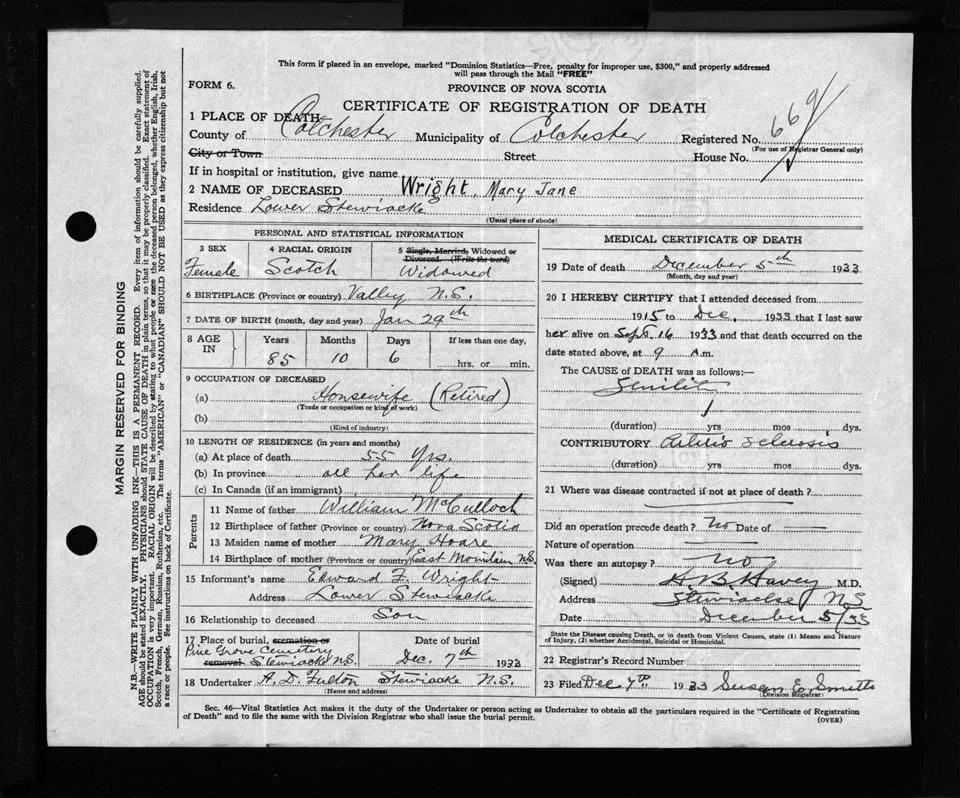 This form if placed in an envelope, marked "Dominion Statistics—Free, penalty for improper use, $300," and properly addressed
will pass through the Mail "FREE"
FORM 6.
PROVINCE OF NOVA SCOTIA
CERTIFICATE OF REGISTRATION OF DEATH
1 PLACE OF DEATH
County of Colchester Municipality of Colchester Registered No. 669
(For use of Registrar General only)
City or Town Street House No.
If in hospital or institution, give name
2 NAME OF DECEASED Wright, Mary Jane
Residence Lower Stewiacke
(Usual place of abode)
PERSONAL AND STATISTICAL INFORMATION
3 SEX 4 RACIAL ORIGIN 5 Single, Married, Widowed or
Divorced. (Write the word)
Female Scotch Widowed
6 BIRTHPLACE (Province or country) Valley N.S.
7 DATE OF BIRTH (month, day and year) Jan 29th
8 AGE IN Years Months Days If less than one day,
85 10 6 hrs. or min.
9 OCCUPATION OF DECEASED
(a) Housewife (Retired)
(Trade or occupation or kind of work)
(b)
(Kind of industry)
10 LENGTH OF RESIDENCE (in years and months)
(a) At place of death 55 Yrs.
(b) In province all her life
(c) In Canada (if an immigrant)
Parents
11 Name of father William McCulloch
12 Birthplace of father (Province or country) Nova Scotia
13 Maiden name of mother Mary Hoare
14 Birthplace of mother (Province or country) East Mountain N.S.
15 Informant's name Edward F. Wright
Address Lower Stewiacke
16 Relationship to deceased Son
17 Place of burial, cremation or Date of burial
Pine Grove Cemetery
removal Stewiacke N.S. Dec. 7th 1933
18 Undertaker A. D. Fulton Stewiacke N.S.
(Name and address)
MEDICAL CERTIFICATE OF DEATH
19 Date of death December 5th 1933
(Month, day and year)
20 I HEREBY CERTIFY that I attended deceased from
1915 to Dec. 1933 that I last saw
her alive on Sept. 16 1933 and that death occurred on the
date stated above, at 9 A.m.
The CAUSE of DEATH was as follows:—
Senility
(duration) yrs mos dys.
CONTRIBUTORY Arterio Sclerosis
(duration) yrs mos dys.
21 Where was disease contracted if not at place of death?
Did an operation precede death? No Date of —
Nature of operation —
Was there an autopsy? No
(Signed) H. B. Havey M.D.
Address Stewiacke N.S.
Date December 5/33
State the Disease causing Death, or in death from Violent Causes, state (1) Means and Nature
of Injury, (2) whether Accidental, Suicidal or Homicidal.
22 Registrar's Record Number
23 Filed Dec 7th. 1933 Susan E. Smith
(Division Registrar)
Sec. 46—Vital Statistics Act makes it the duty of the Undertaker or person acting as Undertaker to obtain all the particulars required in the "Certificate of Registration
of Death" and to file the same with the Division Registrar who shall issue the burial permit.
(OVER)
MARGIN RESERVED FOR BINDING
N.B.—WRITE PLAINLY WITH UNFADING INK—THIS IS A PERMANENT RECORD. Every item of information should be carefully supplied.
AGE should be stated EXACTLY. PHYSICIANS should STATE CAUSE OF DEATH in plain terms, so that it may be properly classified. Exact statement of
OCCUPATION is very important. RACIAL ORIGIN will be described by stating to what people or race the deceased person belonged, whether English, Irish,
Scotch, French, German, Russian, Ruthenian, etc. The terms "AMERICAN" or "CANADIAN" SHOULD NOT BE USED as they express citizenship but not
a race or people. See instructions on back of Certificate.